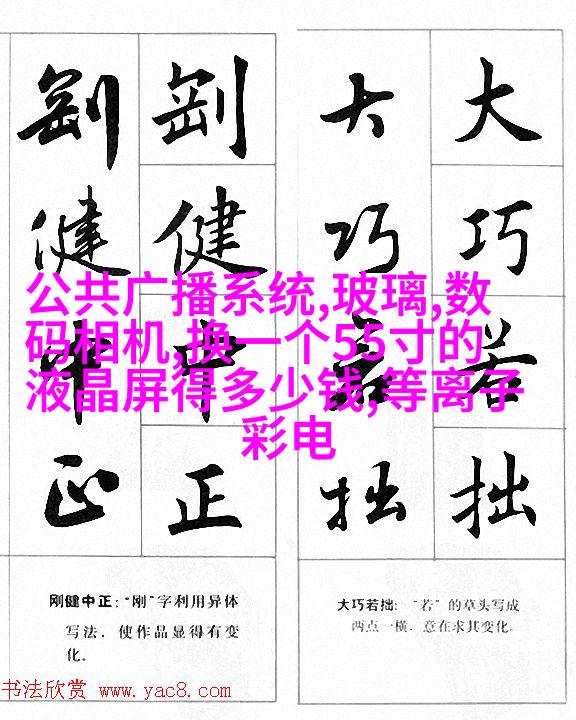 剛 剛 大 大
健 健 巧 巧
中 中 若 若
正 正 拙 拙
公共广播系统,玻璃,数
码相机,换一个55寸的
液晶屏得多少钱,等离子
彩电
刚健中正:“刚”字利用异体
写法,使作品显得有变
化。
大巧若拙:“若”的草头写成
两点一横,意在求其变化。
书法欣赏 www.yac8.com